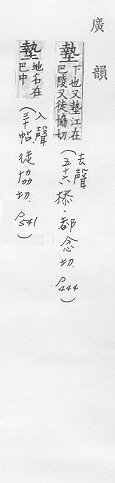 廣韻
墊下也又墊江在巴陵又徒協切
去聲(五十六㮇・都念切 P444)
墊地名在巴中
入聲(三十帖徒協切 P541)